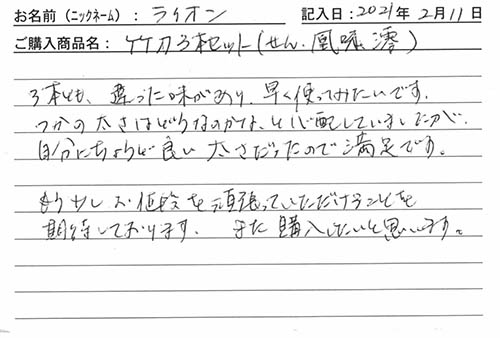 お名前(ニックネーム): ライオン 記入日:2021年 2月11日
ご購入商品名: 竹刀3本セット(せん、風味、澪)
3本とも、違った味があり、早く使ってみたいです。
つかの太さはどうなのかな、と心配していましたが、
自分にちょうど良い太さだったので満足です。
もう少しお値段を頑張っていただけることを
期待しております。 また購入したいと思います。